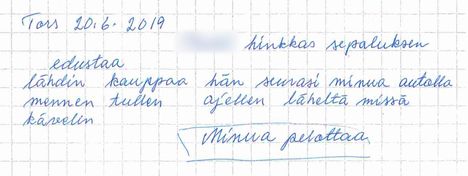 Tors 20.6.2019
hinkkas sepaluksen
edustaa
lähdin kauppaa hän seurasi minua autolla
mennen tullen ajellen läheltä missä
kävelin
Minua pelottaa